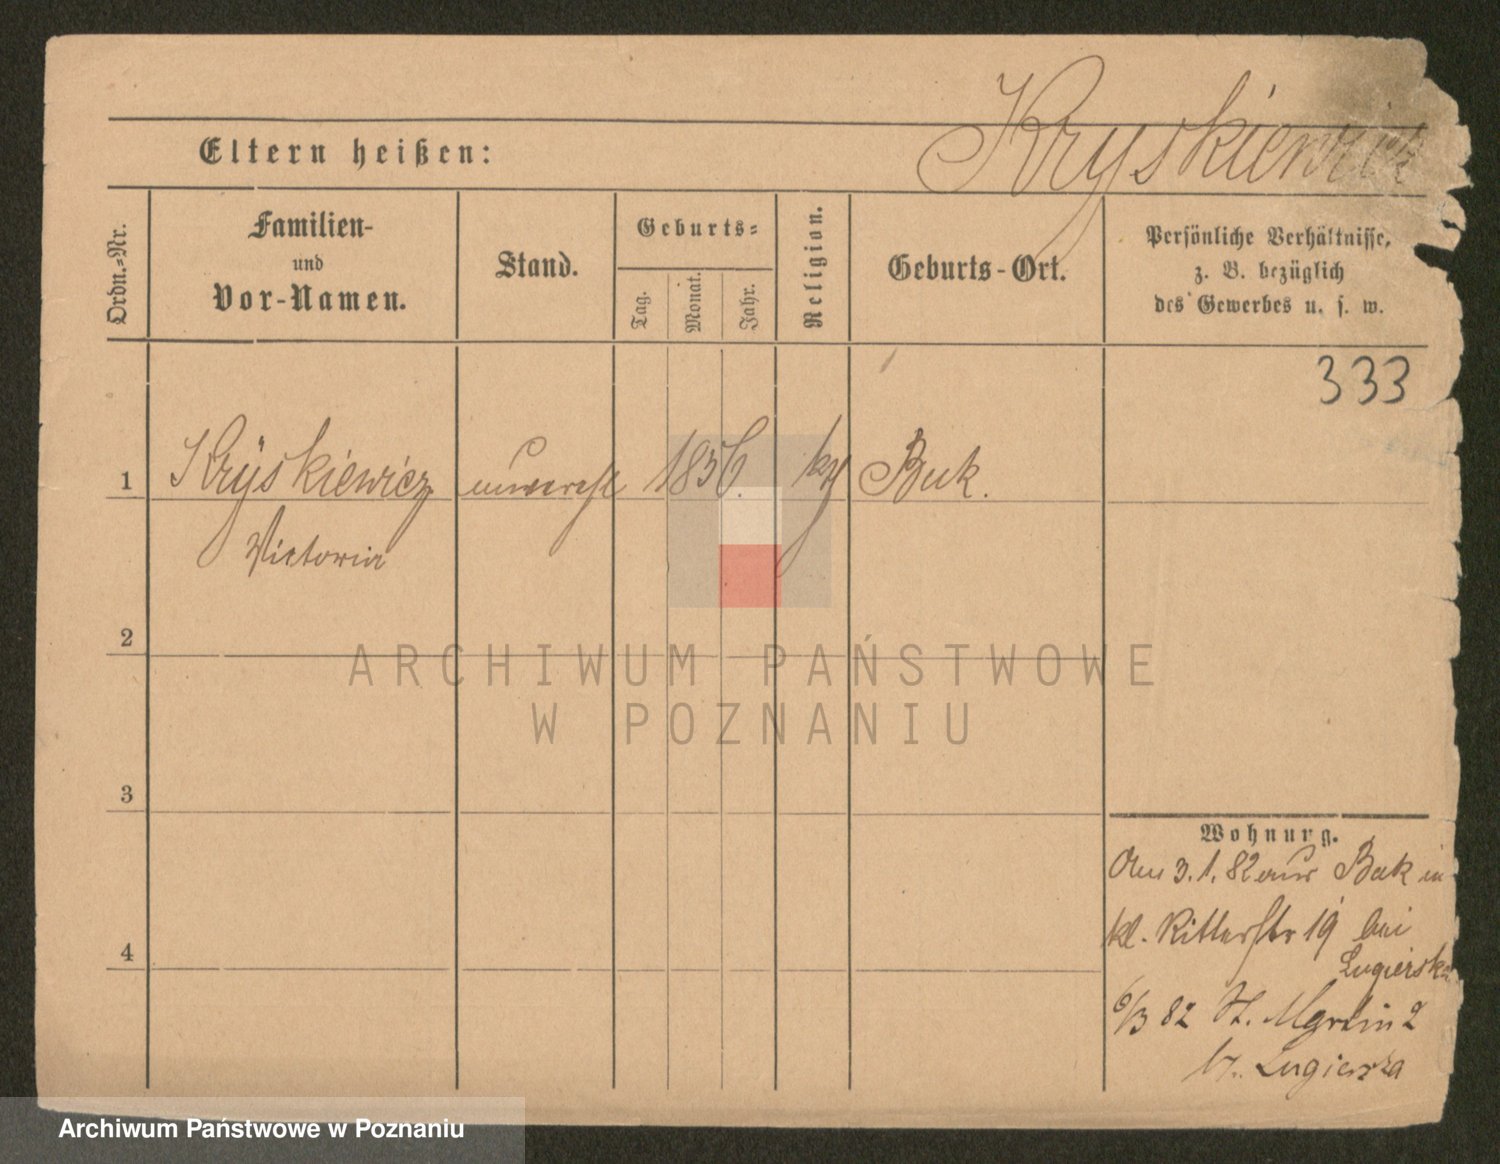 Kryskiewicz
Eltern heißen:
Ordn.-Nr.
Familien-
und
Vor-Namen.
Stand.
Geburts-
Tag.
Monat.
Jahr.
Religion.
Geburts-Ort.
Persönliche Verhältnisse,
z. B. bezüglich
des Gewerbes u. s. w.
333
1 Krÿskiewicz unvereh 1856. Buk.
Victoria
2
ARCHIWUM PAŃSTWOWE
W POZNANIU
3
Wohnung.
Am 3.1.82 aus Buk in
kl. Ritterstr 19 bei
Lugierska
4
6/3 82 St. Martin 2
b. Lugierska
Archiwum Państwowe w Poznaniu